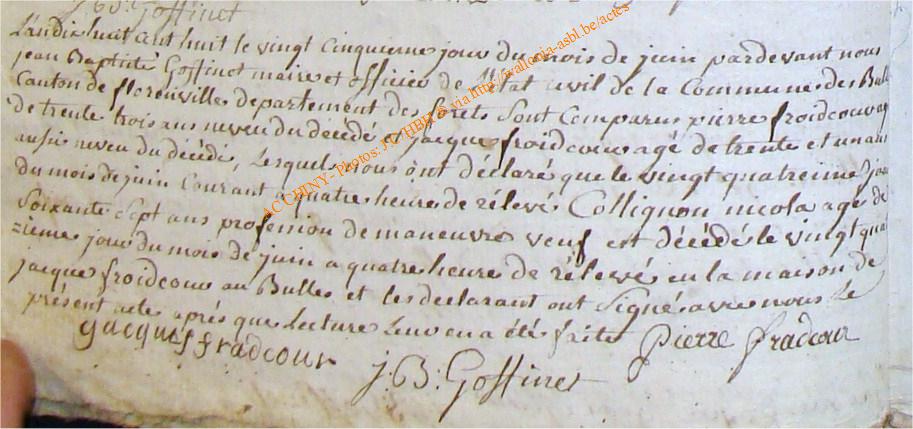 J:B: Goffinet
L'an dix huit cent huit le vingt cinquieme jour du mois de juin pardevant nous
jean Baptiste Goffinet maire et officier de l'Etat civil de la Commune des Bulles
Canton de florenville departement des forets Sont Comparus pierre froidcour agé
de trente trois ans neveu du décédé et jacque froidcour agé de trente et un ans
aussie neveu du décédé, Lesquels nous ont déclaré que le vingt quatreime jour
du mois de juin Courant a quatre heure de rélevé Collignon nicola agé de
Soixante Sept ans profession de maneuvre veuf est décédé le vingt quat
=rieme jour du mois de juin a quatre heure de rélevé en la maison de
jacque froidcour au Bulles et les declarant ont Signé avec nous Le
présent acte aprés que Lecture Leur en a été faite
Jacques fradcour
Pierre fradcour
J:B: Goffinet
ACCHINY - Photos: via http://wallonia-asbl.be/actes